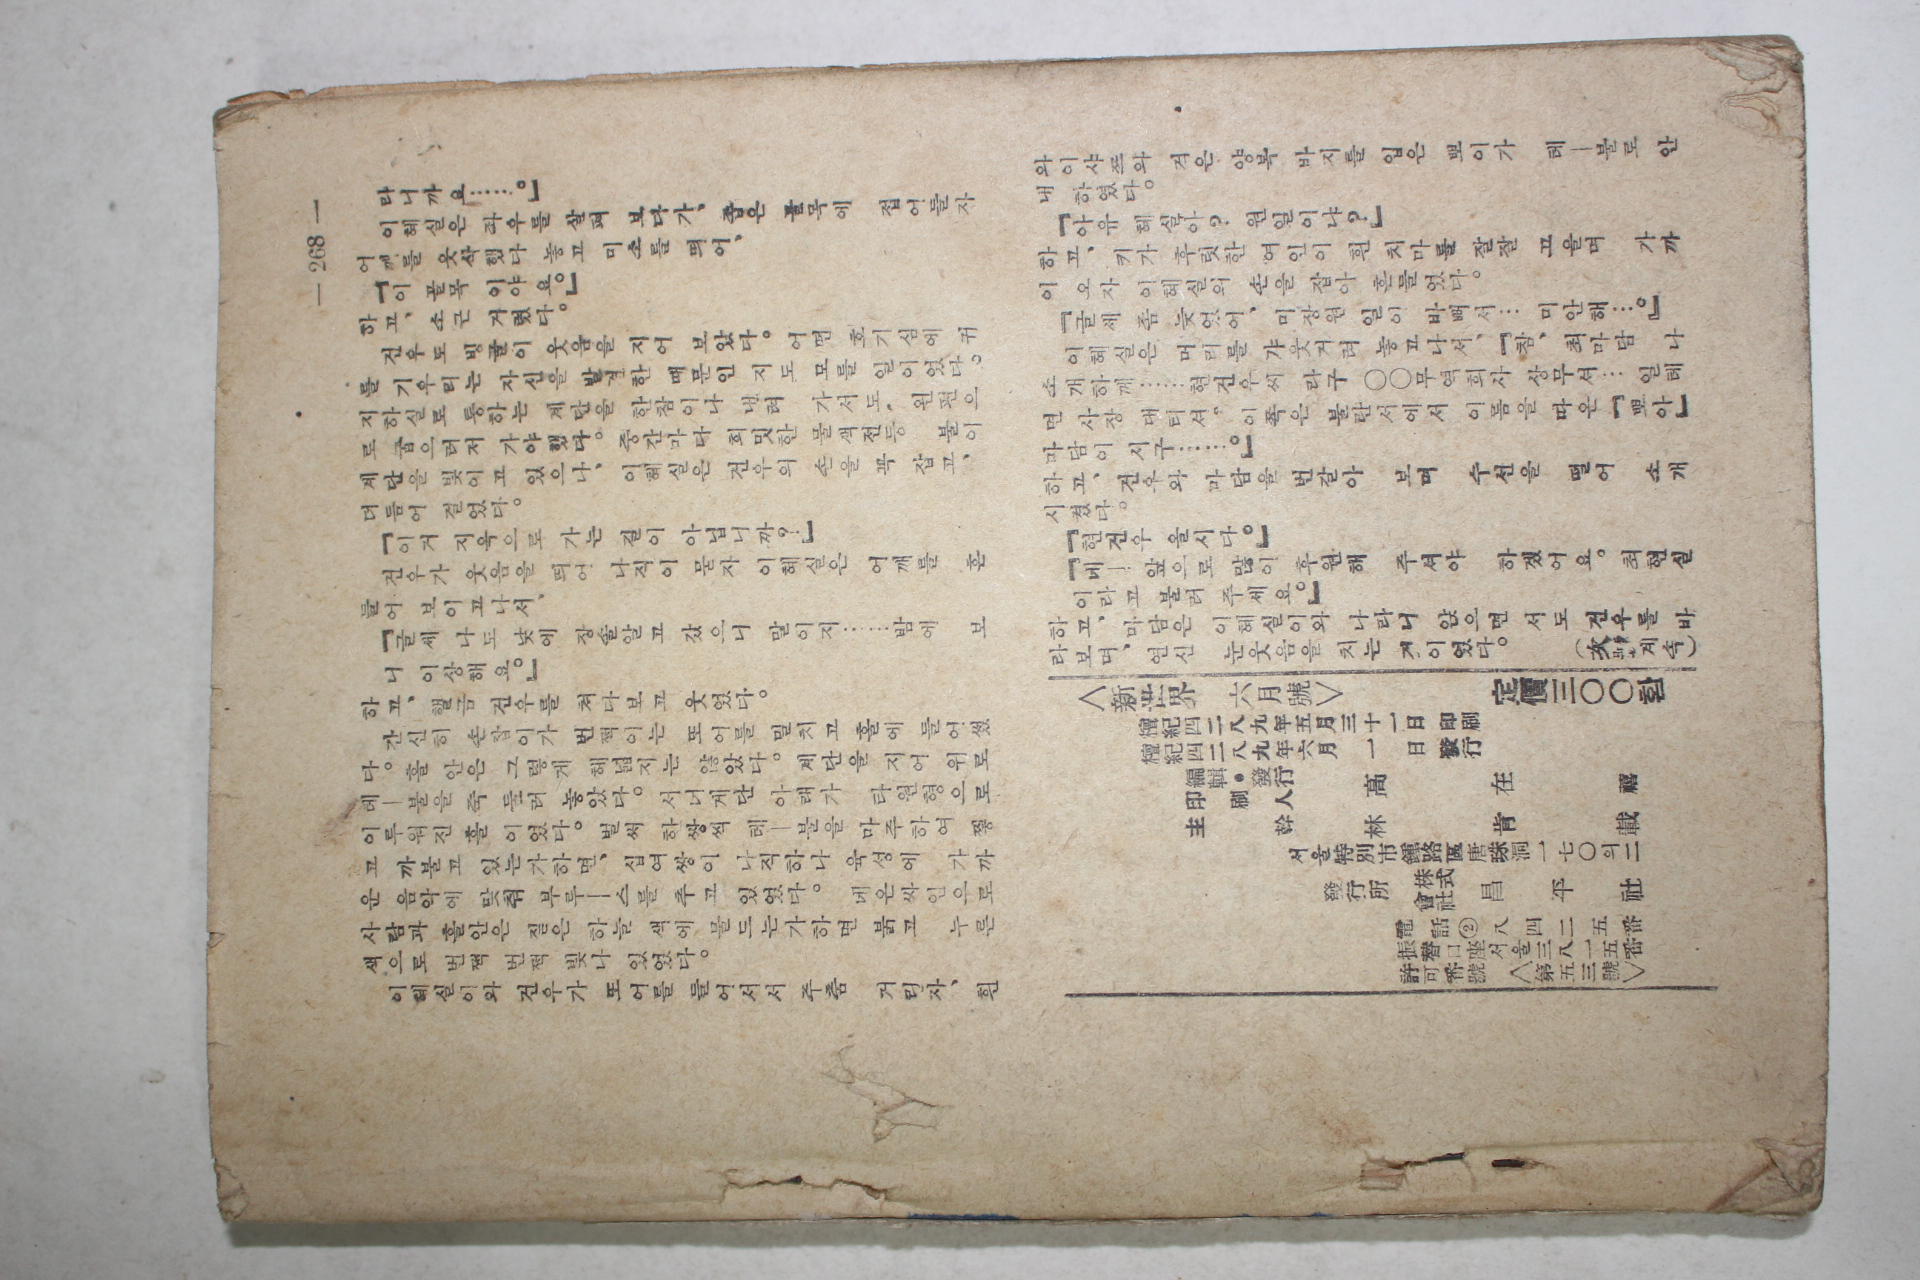 — 268 —
라니까요……。」
이혜실은 좌우를 살펴 보다가, 좁은 골목에 접어들자
어깨를 웃삭했다 놓고 미소를 띄어,
「이 골목 이야요。」
하고, 소근 거렸다。
건우도 빙귤이 웃음을 지어 보았다。어면 호기심에 귀
를 기우리는 자신을 발견한 때문인 지도 모를 일이었다。
지하실로 통하는 계단을 한참이나 내려 가서도, 왼편으
로 굽으러저 가야했다。중간마다 희밋한 물색전등 불이
계단을 빛이고 있으나, 이혜실은 건우의 손을 꼭 잡고,
더듬어 걸었다。
「이거 지옥으로 가는 길이 아닙니까?」
건우가 웃음을 띄어 나직이 묻자 이혜실은 어깨를 흔
들어 보이고나서,
「글쎄 나도 낮에 장술알고 갔으니 말이지……밤에 보
니 이상해요。」
하고, 핼금 건우를 쳐다보고 웃었다。
간신히 손잡이가 번쩍이는 또어를 밀치고 홀에 들어섰
다。홀 안은 그렇게 해넓지는 않았다。계단을 지어 위로
테—불을 죽 둘러 놓았다。서너계단 아래가 타원형으로
이루워진 홀이었다。벌써 하쌍씩 테—불을 마주하여 찧
고 까불고 있는가하면, 십여쌍이 나직하나 육성에 가까
운 음악에 맞춰 부루—스를 추고 있었다。네온싸인으로
사람과 홀안은 짙은 하늘 색에 물드는가하면 붉고 누른
색으로 번쩍 번쩍 빛나 있었다。
이혜실이와 건우가 또어를 들어서서 주춤 거리자, 흰
와이샤쯔와 검은 양복 바지를 입은 뽀이가 테—불로 안
내 하였다。
「아유 혜실아? 원일이냐?」
하고, 키가 후릿한 여인이 흰 치마를 잘잘 끄을며 가까
이 오자 이혜실의 손을 잡아 흔들었다。
「글쎄 좀 늦었어, 미장원 일이 바빠서… 미안해…。」
이혜실은 머리를 갸웃거려 놓고나서, 「참, 최마담 나
소개하께……현건우씨 라구 〇〇무역회사 상무셔… 일테
면 사장 대티셔。이쪽은 불란서에서 이름을 따온 「뽀아」
마담이 시구……。」
하고, 건우와 마담을 번갈아 보며 수선을 떨어 소개
시켰다。
「현건우 올시다。」
「네—, 앞으로 많이 후원해 주셔야 하겠어요。최현실
이라고 불러 주세요。」
라하고, 마담은 이혜실이와 나라니 앉으면서도 건우를 바
라보며, 연신 눈웃음을 치는 게이었다。 (次號계속)
〈新世界 六月號〉 定價三〇〇환
檀紀四二八九年五月三十一日 印刷
檀紀四二八九年六月 一 日 發行
編輯・發行 印刷人 高在禧
主幹 林肯載
서울特別市鍾路區唐珠洞一七〇의二
發行所 株式會社 昌平社
電話②八四二五番
振替口座서울三八一五番
許可番號〈第五三號〉